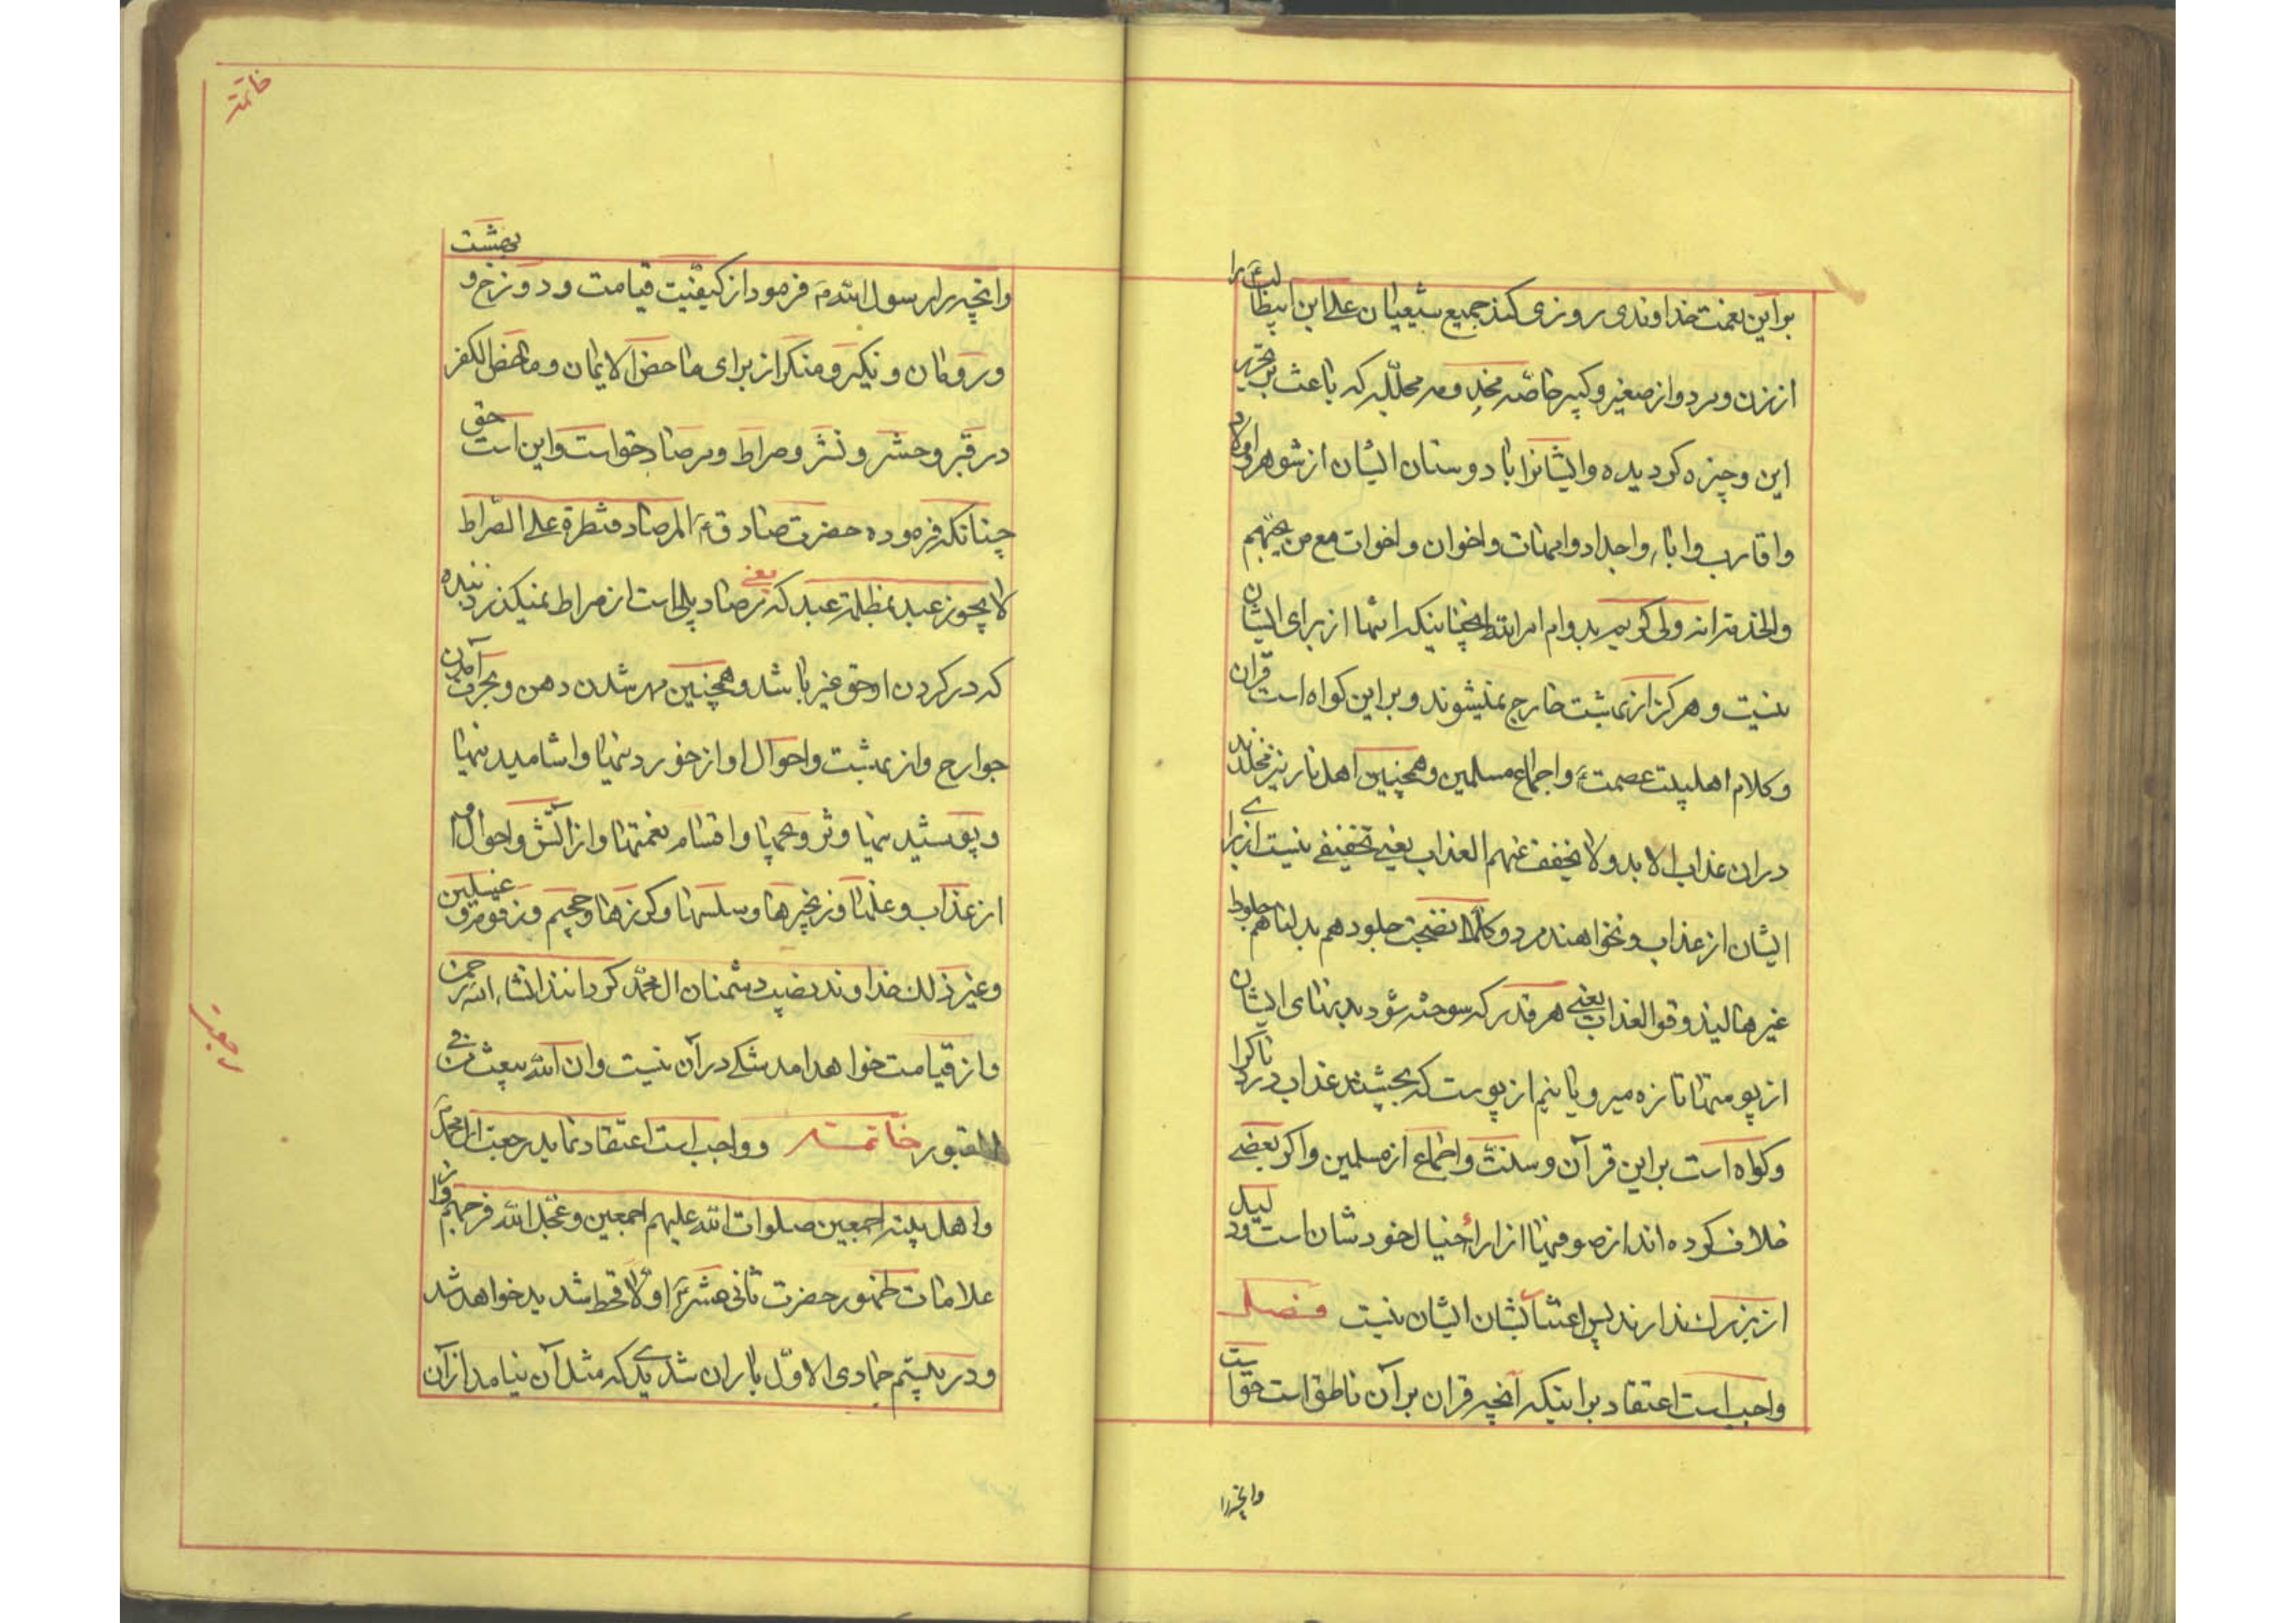 براین نعمت خداوندی روزی کند جمیع شیعیان علی ابن ابیطالب ع را
از زن و مرد و از صغیر و کبیر خاصه مخدومه مجلله که باعث بر تحریر
این وجیزه گردیده و ایشانرا با دوستان ایشان از شوهر و اولاد
و اقارب و اباء و اجداد و امهات و اخوان و اخوات مع من یحبهم
بدوام امر الله اینکه انتها از برای ایشان
نیست و هرکز از بهشت خارج نمیشوند و براین کواه است قران
و کلام اهلبیت عصمت ع و اجماع مسلمین و همچنین اهل نار نیز مخلدند
دران عذاب الا بد و لا یخفف عنهم العذاب یعنی تخفیفی نیست از برای
ایشان از عذاب و نخواهند مرد و کلما نضجت جلودهم بدلناهم جلودا
غیرها لیذوقوا العذاب یعنی هر قدر که سوخته شود بدنهای ایشان
از پوستها تازه میرویانیم از پوست که بچشند عذاب دردناکرا
و کواه است براین قرآن و سنت و اجماع از مسلمین و اکر بعضی
خلاف کرده اند از صوفیها از اراء خیال خودشان است و دلیل
از بزرک ندارند پس اعتنا بشان ایشان نیست فصل
واجب است اعتقاد براینکه آنچه قران برآن ناطق است حق است
وانچه را
خاتمه
وانچه را رسول الله ص فرمود از کیفیت قیامت و دوزخ و بهشت
و رومان و نکیر و منکر از برای ماحض الایمان و ماحض الکفر
در قبر و حشر و نشر و صراط و مرصاد حق است و این است حق
چنانکه فرموده حضرت صادق ع المرصاد قنطرة علی الصراط
لا یجوز عبد بمظلمة عبد که یعنی مرصاد پلی است از صراط نمیکذرد بنده
که در کردن او حق غیر باشد و همچنین مهر شدن دهن و بحرف آمدن
جوارح و از بهشت و احوال او از خوردنیها و اشامیدنیها
و پوشیدنیها و اقسام نعمتها و از آتش و احوال او
از عذاب و غلها و زنجیرها و سلسلها و کرزها و جحیم و زقوم و غسلین
و غیر ذلک خداوند نصیب دشمنان ال محمد کرداند انشاء الله الرحمن
و از قیامت خواهد امد شکی درآن نیست و ان الله یبعث من فی
القبور خاتمة و واجب است اعتقاد نماید رجعت ال محمد ص
رجعت
و اهل بیته اجمعین صلوات الله علیهم اجمعین و عجل الله فرجهم و از
علامات ظهور حضرت ثانی عشر ع اولا قحط شدید خواهد شد
و در بیستم جمادی الاول باران شدیدی که مثل آن نیامد از آن